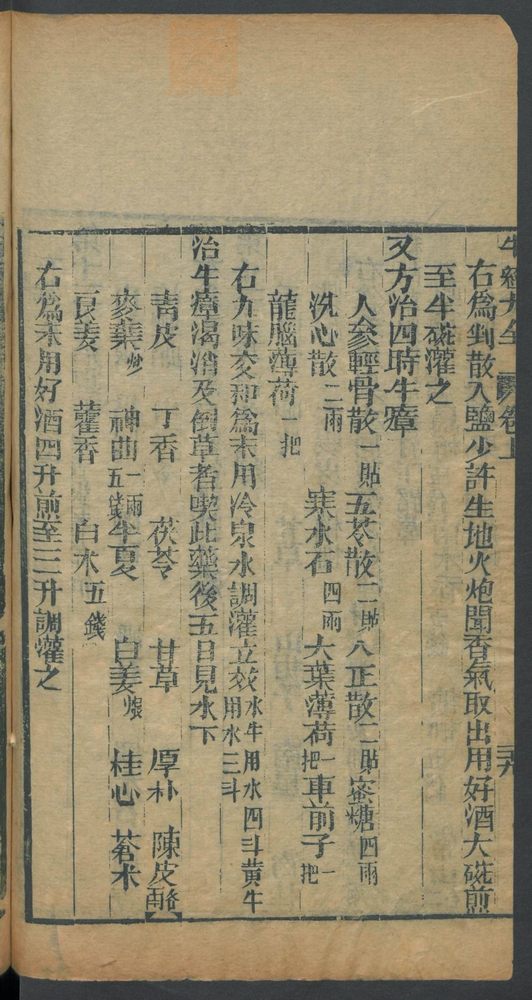 牛經大全 卷上
右爲剉散入鹽少許生地火炮聞香氣取出用好酒大碗煎
至半碗灌之
又方治四時牛瘴
人參輕骨散一貼五苓散二貼八正散二貼蜜糖四兩
洗心散二兩 寒水石四兩 大葉薄荷一把車前子一把
龍腦薄荷一把
右九味交和爲末用冷泉水調灌立效水牛用水四斗黄牛用水三斗
治牛瘴渴消及倒草者喫此藥後五日見水下
青皮 丁香 茯苓 甘草 厚朴 陳皮
麥蘗炒 神曲一兩五錢半夏 白姜煨 桂心 蒼术
良姜 藿香 白术五錢
右爲末用好酒四升煎至三升調灌之